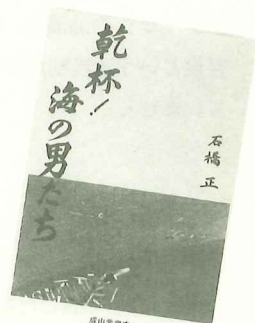 乾杯!
海の男たち
石橋正
成山堂書店